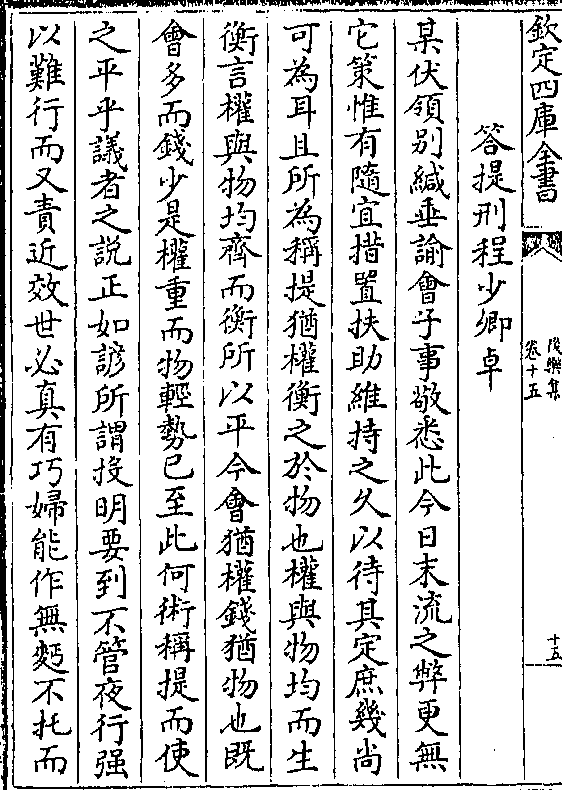 欽定四庫全書
後樂集
卷十五
十五
答提刑程少卿卓
某伏領别緘垂諭會子事敬悉此今日末流之弊更無
它策惟有隨宜措置扶助維持之久以待其定庶幾尚
可為耳且所為稱提猶權衡之於物也權與物均而生
衡言權與物均齊而衡所以平今會猶權錢猶物也既
會多而錢少是權重而物輕勢已至此何術稱提而使
之平乎議者之説正如諺所謂投明要到不管夜行强
以難行而又責近效世必真有巧婦能作無麪不托而